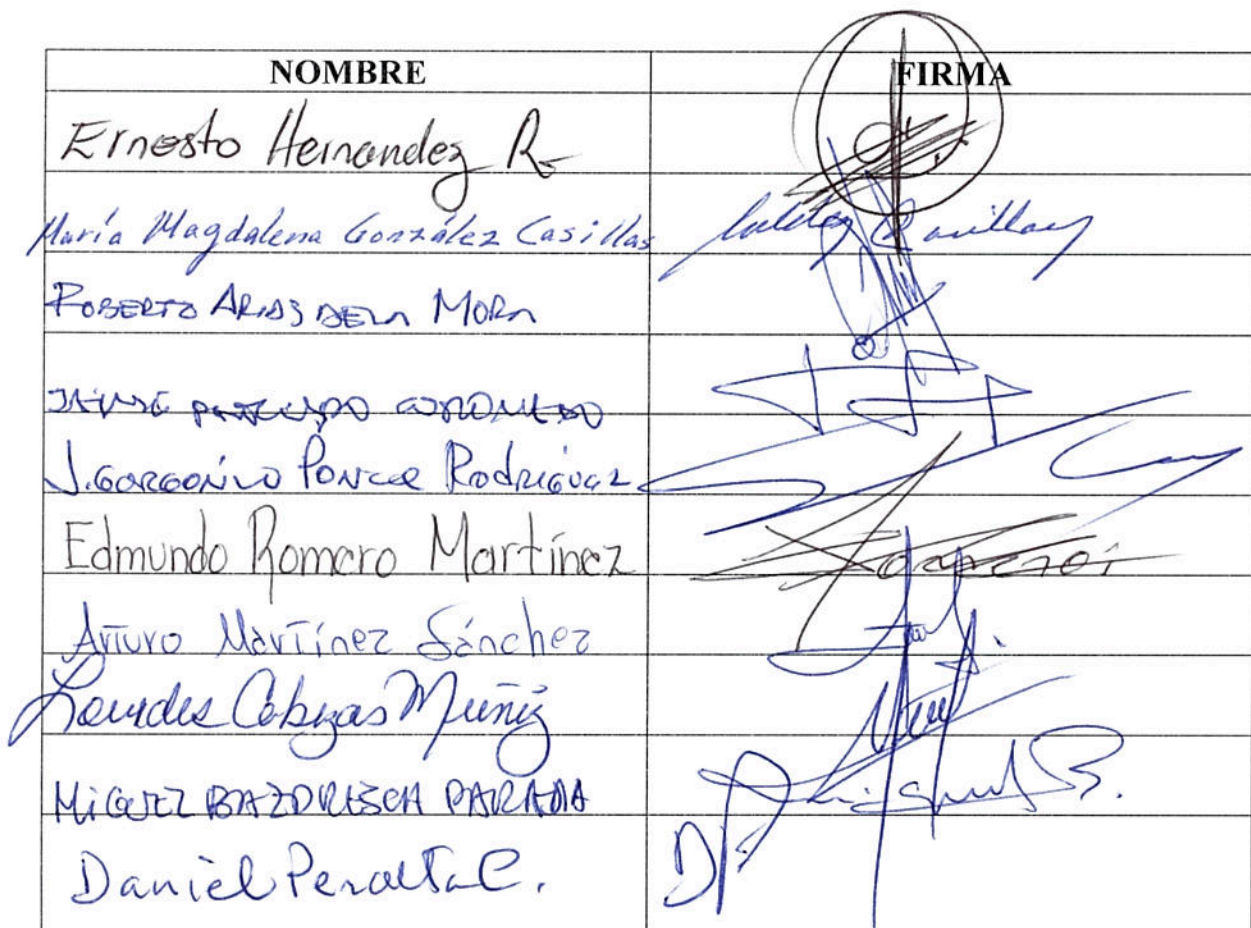 NOMBRE FIRMA
Ernesto Hernandez R.
María Magdalena González Casillas Casillas
ROBERTO ARIAS DE LA MORA
JAIME
J. GORGONIO PONCE RODRÍGUEZ
Edmundo Romero Martínez
Arturo Martínez Sánchez
Lourdes Cabezas Muñiz
MIGUEL BAZDRESCH PARADA Miguel B.
Daniel Peralta C. DP